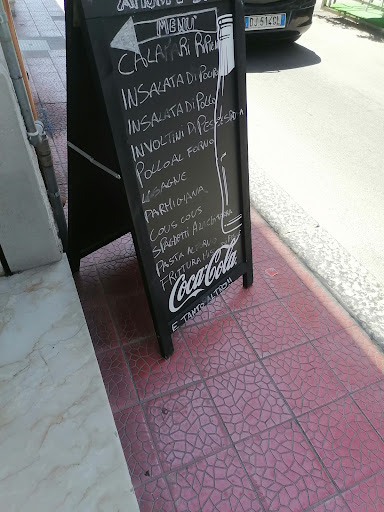 MIGNOLI
CALAMARI RIPIENI
INSALATA DI POLIPO
INSALATA DI POLLO
INVOLTINI DI PESCE SPADA
POLLO AL FORNO
LASAGNE
PARMIGIANA
COUS COUS
SPAGHETTI ALLO
PASTA AL FORNO
FRITTURA
Coca-Cola
E TANTO ALTRO!!
DJ514CL